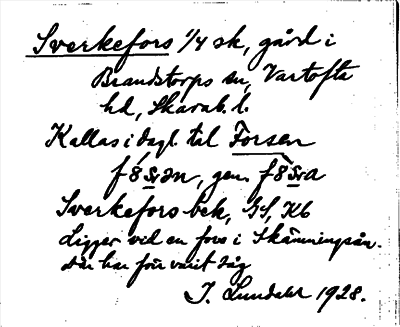 Sverkefors 1/4 sk, gård i
Brandstorps sn, Vartofta
hd, Skarab. l.
Kallas i dagl. tal Forsen
f8ṣən, gen. f8ṣa
Sverkefors bek, GS, Kb
Ligger vid en fors i Skämningsån.
där har förr varit såg
J. Lundahl 1928.